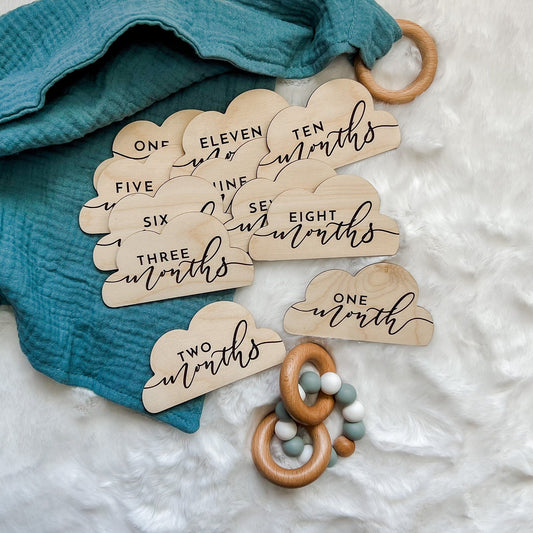 ONE
ELEVEN
months
TEN
months
FIVE
NINE
SIX
EIGHT
months
THREE
months
ONE
month
TWO
months